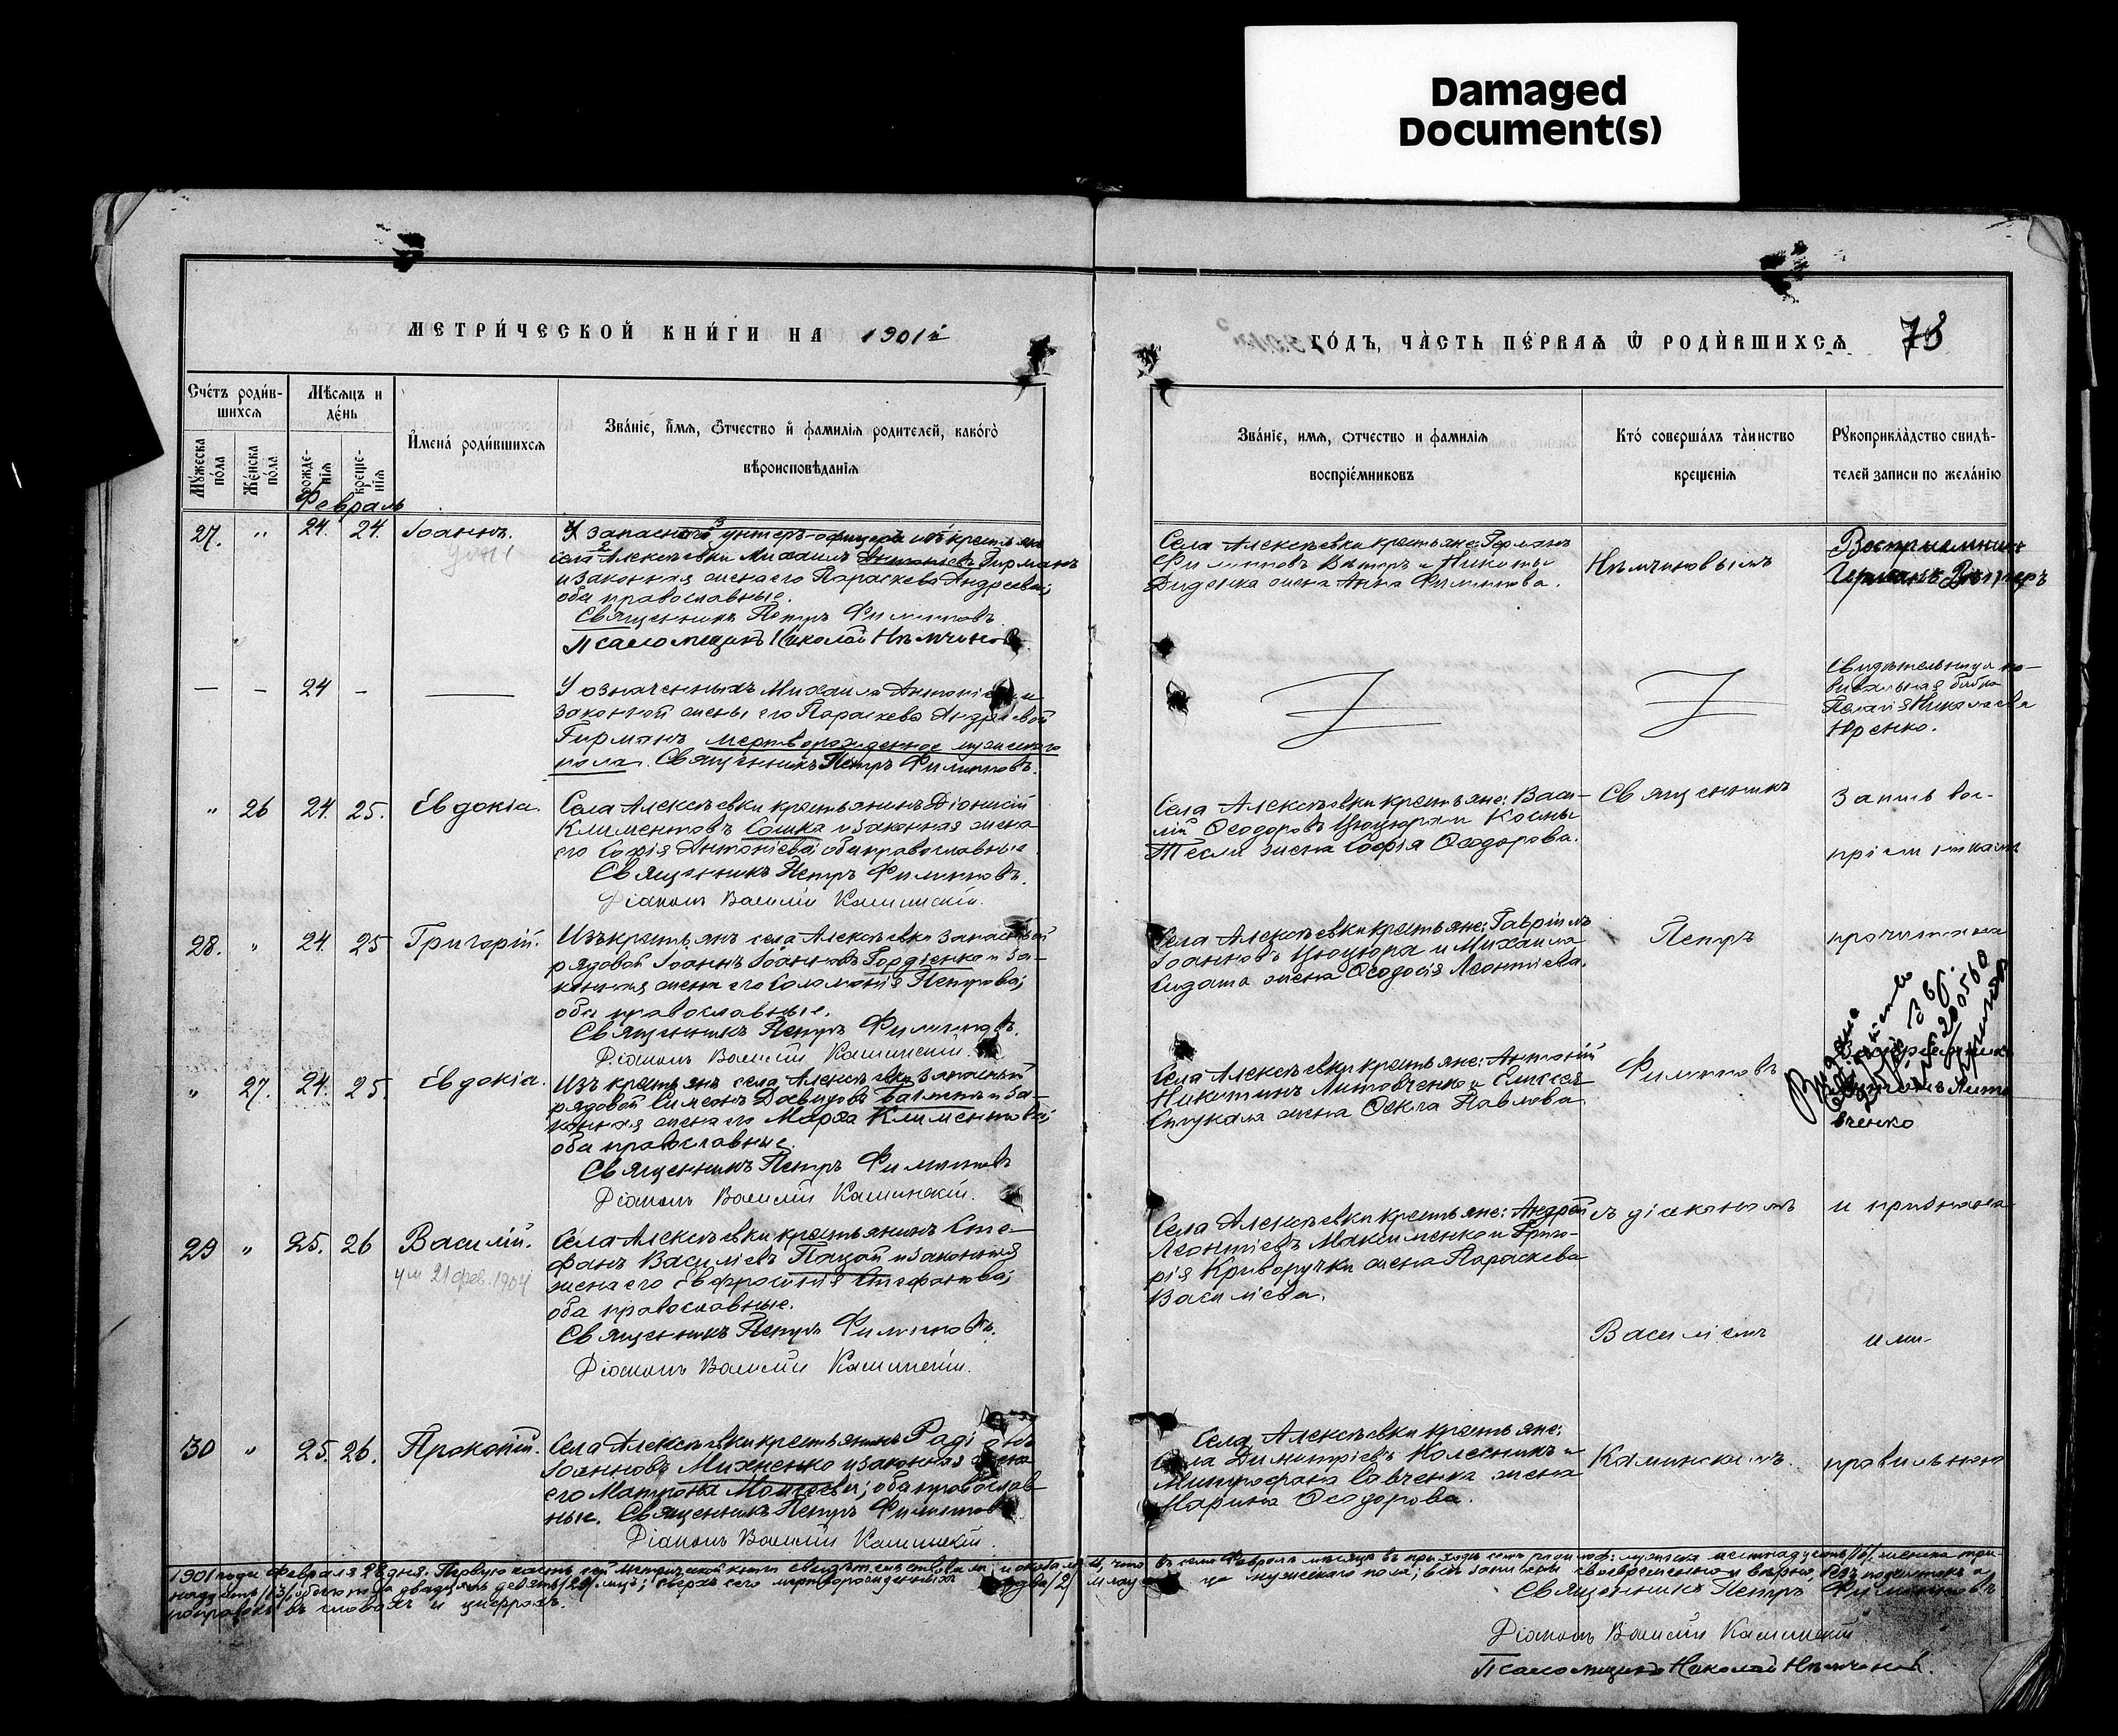 Damaged
Document(s)
МЕТРИ́ЧЕСКОЙ КНИ́ГИ НА 1901й
ГО́ДЪ, ЧА́СТЬ ПЕ́РВАЯ Ѿ РОДИ́ВШИХСЯ
Сче́тъ роди́в-
шихся
Мѣсяцъ и
де́нь
Имена́ роди́вшихся
Зва́ніе, и́мя, ѻтчество и фамилія родителей, како́го
вѣроисповѣданія
Мꙋжеска по́ла
Же́нска по́ла
рожде-
нія
креще-
нія
Февраль
Зва́ніе, имя, ѻтчество и фамилія
воспріе́мниковъ
Кто́ соверша́лъ та́инство
крещенія
Рꙋкоприкла́дство свидѣ-
телей записи по жела́нію
27. " 24. 24. Іоаннъ.
У запасного унтеръ-офицера изъ крестьянъ
села Алексѣевки Михаилъ Антоніевъ Гирманъ
и законная жена его Параскева Андреева;
оба православные.
Священникъ Петръ Филипповъ.
Псаломщикъ Николай Нѣмчиновъ
Села Алексѣевки крестьяне: Германъ
Филипповъ и Никиты
Диденка жена Анна Филиппова.
Нѣмчиновымъ
Воспріемникъ
Германъ
— - 24 - —
У означенныхъ Михаила Антоніева и
законной жены его Параскевы Андреевой
Гирманъ мертворожденное мужескаго
пола. Священникъ Петръ Филипповъ.
Свидѣтельница по-
вивальная бабка
Николаева
Юренко.
" 26 24. 25. Евдокіа.
Села Алексѣевки крестьянинъ Діонисій
Климентовъ Сошка и законная жена
его Софія Антоніева; оба православные
Священникъ Петръ Филипповъ.
Діаконъ Василій Калинскій.
Села Алексѣевки крестьяне: Васи-
лій Ѳеодоровъ Цюцюра и Космы
жена Софія Ѳеодорова.
Священникъ
Запись вос-
пріемникамъ
28. " 24. 25 Григорій.
Изъ крестьянъ села Алексѣевки запасный
рядовой Іоаннъ Іоанновъ Гордіенко и за-
конная жена его Соломонія Петрова;
оба православные.
Священникъ Петръ Филипповъ.
Діаконъ Василій Калинскій.
Села Алексѣевки крестьяне: Гавріилъ
Іоанновъ Цюцюра и Михаила
жена Ѳеодосія Леонтіева.
Петръ
прочитана
" 27. 24. 25. Евдокіа.
Изъ крестьянъ села Алексѣевки запасный
рядовой Симеонъ Давидовъ и за-
конная жена его Марѳа Климентова;
оба православные.
Священникъ Петръ Филипповъ
Діаконъ Василій Калинскій.
Села Алексѣевки крестьяне: Антоній
Никитинъ Литовченко и Елисея
Стукала жена Ѳекла Павлова.
Филипповъ
Лито
вченко
29 " 25. 26 Василій.
ум 21 фев. 1904
Села Алексѣевки крестьянинъ Сте-
фанъ Василіевъ и законная
жена его Евфросинія Стефанова;
оба православные.
Священникъ Петръ Филипповъ.
Діаконъ Василій Калинскій.
Села Алексѣевки крестьяне: Андрей
Леонтіевъ Максименко и Григо-
рія Криворучки жена Параскева
Василіева.
съ діакономъ
и признана
Василіемъ
ими
30 " 25. 26. Прокопій.
Села Алексѣевки крестьянинъ Радіонъ
Іоанновъ Михненко и законная жена
его Матрона Моисеева; оба православ-
ные. Священникъ Петръ Филипповъ
Діаконъ Василій Калинскій.
Села Алексѣевки крестьяне:
Димитріевъ Колесникъ и
Митрофана Савченка жена
Марина Ѳеодорова.
Калинскимъ.
правильною
1901 года Февраля 28 дня. Первую часть сей метрической книги свидѣтельствовали и оказалось, что въ семъ Февралѣ мѣсяцѣ въ приходѣ семъ мужска шестнадцать /16/, женска три-
надцать /13/, обоего пола двадцать девять /29/ лицъ; сверхъ сего мертворожденныхъ два /2/ младенца мужескаго пола; всѣ записаны своевременно и вѣрно, безъ подчистокъ и
поправокъ въ словахъ и цифрахъ.
Священникъ Петръ Филипповъ
Діаконъ Василій Калинскій
Псаломщикъ Николай Нѣмчиновъ.